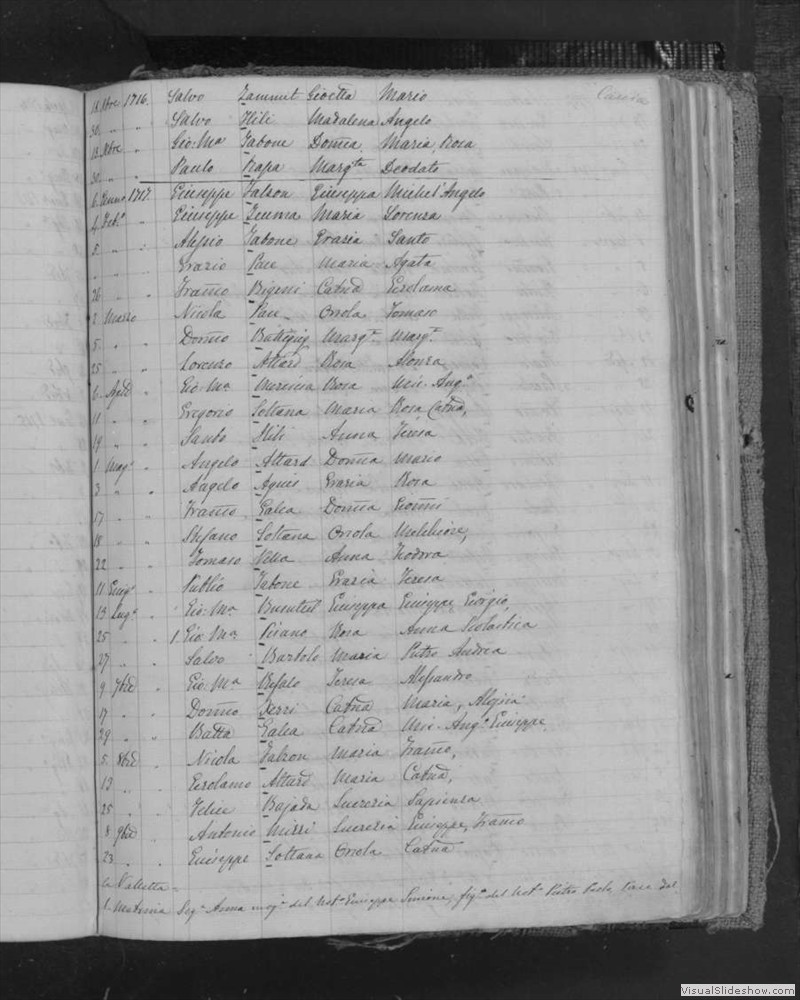 18 Nbre 1716. Salvo Zammit Gioetta Mario
30 " " Salvo Hili Madalena Angelo
13 Nbre " Gio: Ma Fabone Domca Maria Rosa
30 " " Paulo Rapa Margta Deodato
6 Genno 1717. Giuseppe Falzon Giuseppa Michel'Angelo
4 Feb.o " Giuseppe Zeuma Maria Lorenza
5 " " Alessio Fabone Grazia Santo
" " Grazio Pace Maria Agata
26 " " Franco Catna Gerolama
2 Marzo " Nicola Pace Orsola Tomaso
5 " " Domco Buttigieg Margta Margta
25 " " Lorenzo Attard Rosa Alonza
6 Aple " Gio: Ma Rosa Mic: Ang.o
11 " " Gregorio Soltana Maria Rosa, Catna,
19 " " Santo Hili Anna Teresa
1 Mag.o " Angelo Attard Domca Mario
3 " " Angelo Agius Grazia Rosa
17 " " Franco Galea Domca Gionni
18 " " Stefano Soltana Orsola Melchiore,
22 " " Tomaso Vella Anna Teodora
11 Giug.o " Publio Fabone Grazia Teresa
13 Lug.o " Gio: Ma Busuttil Giuseppa Giuseppe Giorgio,
25 " " 1 Gio: Ma Pisano Rosa Anna Scolastica
27 " " Salvo Bartolo Maria Pietro Andrea
9 7bre " Gio: Ma Teresa Alessandro
17 " " Domco Ferri Catna Maria, Alessia
29 " " Batta Galea Catna Mic: Ang.o Giuseppe
5 8bre " Nicola Falzon Maria Franco,
13 " " Gerolamo Attard Maria Catna,
25 " " Felice Bajada Lucrezia Sapienza
8 9bre " Antonio Mizzi Lucrezia Giuseppe, Franco
23 " " Giuseppe Soltana Orsola Catna
la Valletta
Sig.a Anna mog.e del Not.o Giuseppe Simone, fig.a del Not.o Pietro Paolo
VisualSlideshow.com